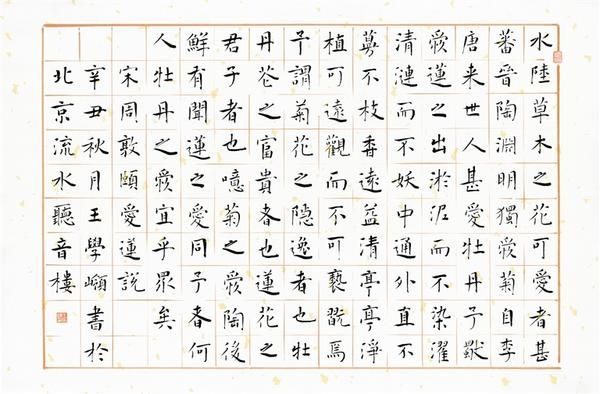 水陸草木之花可愛者甚
蕃晋陶淵明獨愛菊自李
唐来世人甚愛牡丹予獨
愛蓮之出淤泥而不染濯
清漣而不妖中通外直不
蔓不枝香遠益清亭亭淨
植可遠觀而不可褻翫焉
予謂菊花之隐逸者也牡
丹花之富貴者也蓮花之
君子者也噫菊之愛陶後
鮮有聞蓮之愛同予者何
人牡丹之愛宜乎眾矣
宋周敦頤愛蓮説
辛丑秋月王學嶺書於
北京流水聽音樓